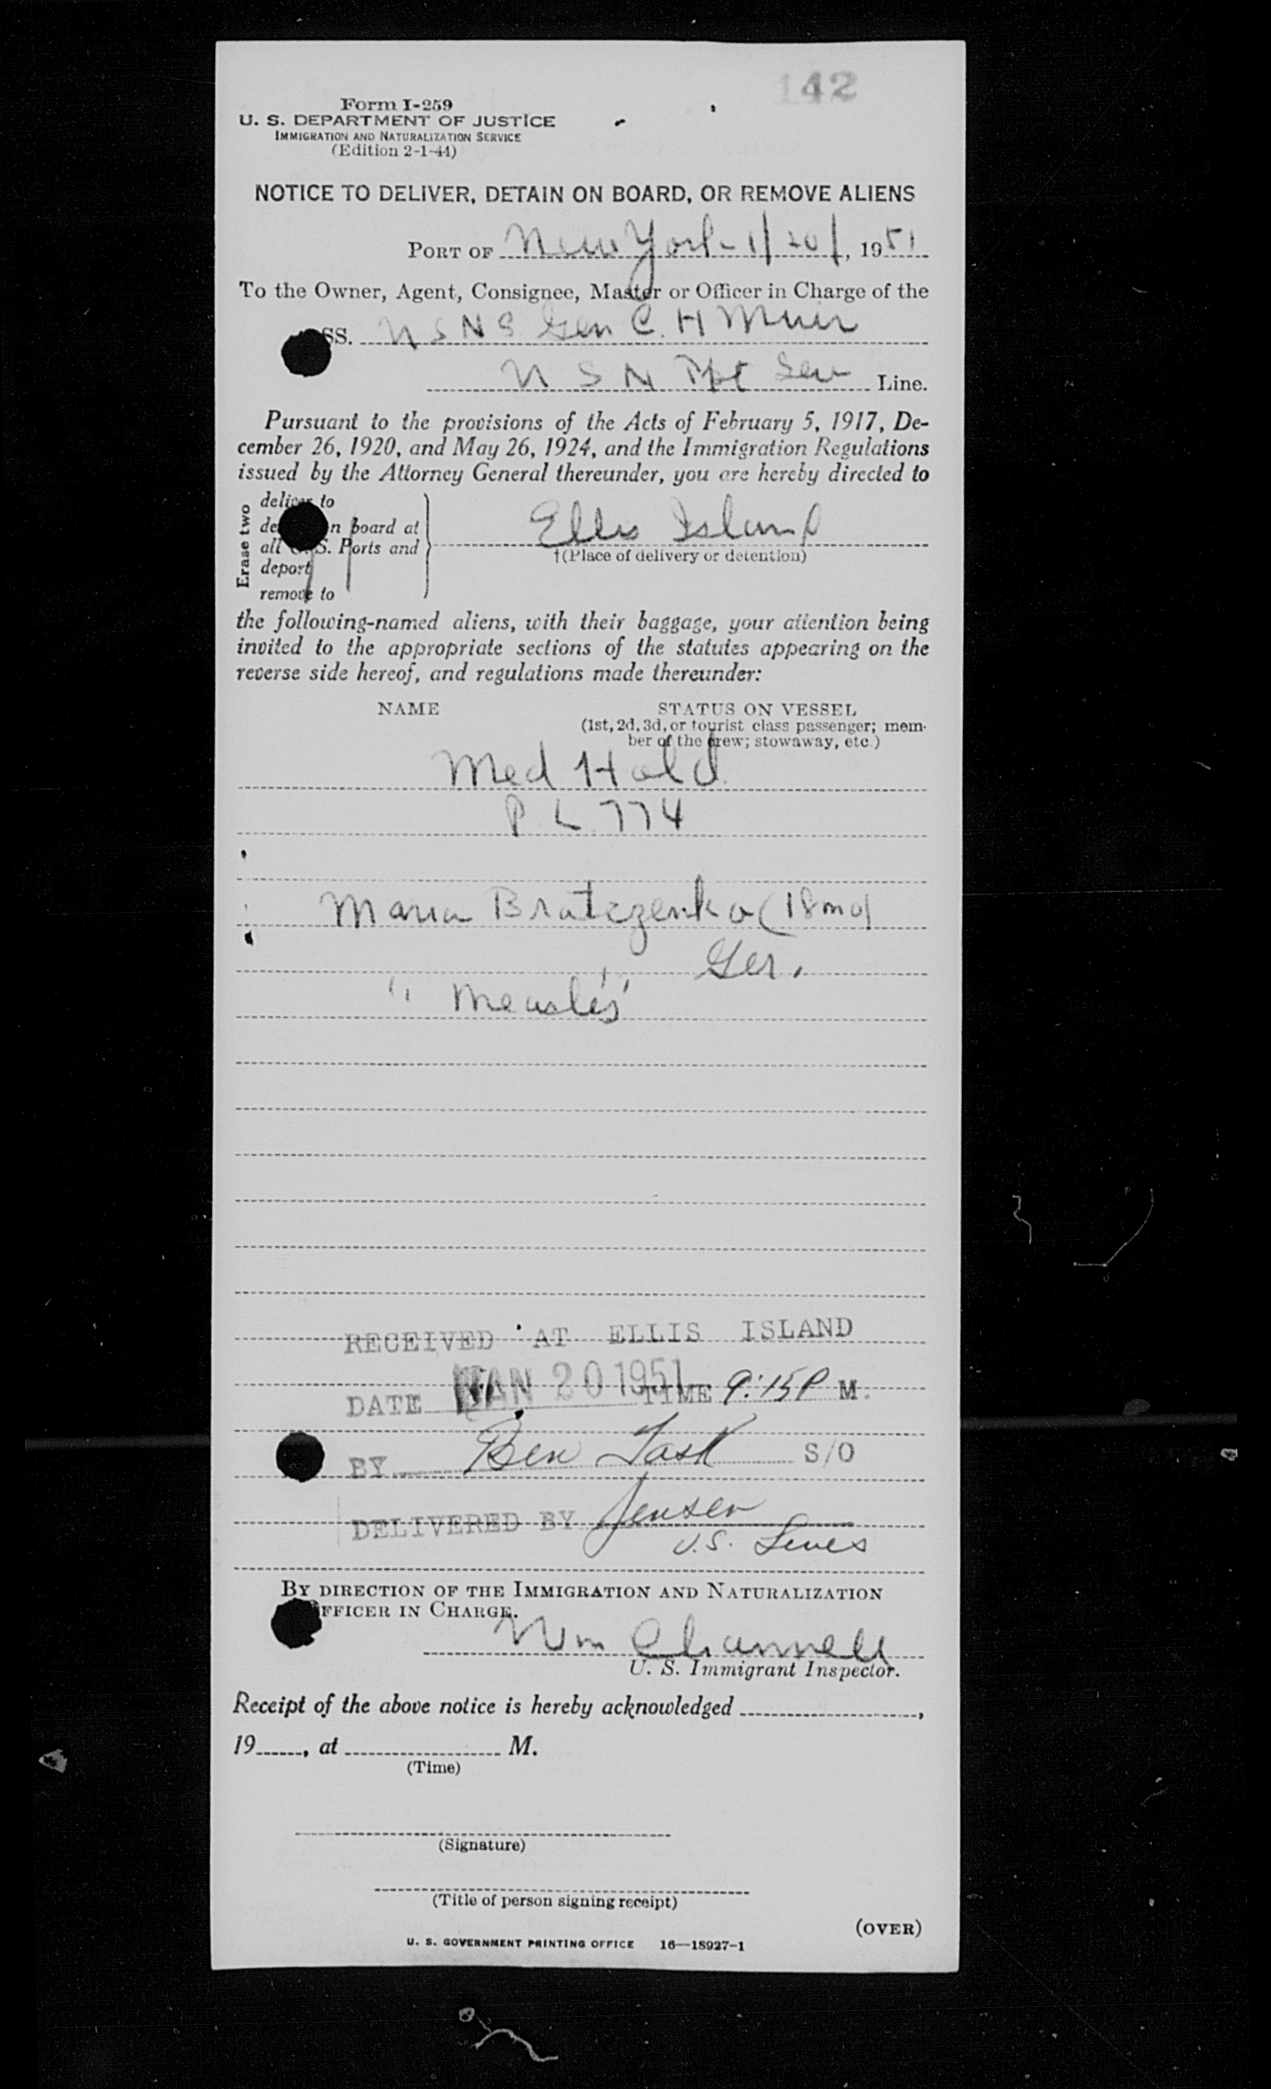 142
Form I-259
U. S. DEPARTMENT OF JUSTICE
IMMIGRATION AND NATURALIZATION SERVICE
(Edition 2-1-44)
NOTICE TO DELIVER, DETAIN ON BOARD, OR REMOVE ALIENS
PORT OF New York 1/20/, 1951
To the Owner, Agent, Consignee, Master or Officer in Charge of the
SS. USNS Gen C. H Muir
U S N Tpt Ser Line.
Pursuant to the provisions of the Acts of February 5, 1917, De-
cember 26, 1920, and May 26, 1924, and the Immigration Regulations
issued by the Attorney General thereunder, you are hereby directed to
Erase two
deliver to
board at
all U. S. Ports and
deport
remove to
Ellis Island
†(Place of delivery or detention)
the following-named aliens, with their baggage, your attention being
invited to the appropriate sections of the statutes appearing on the
reverse side hereof, and regulations made thereunder:
NAME STATUS ON VESSEL
(1st, 2d, 3d, or tourist class passenger; mem-
ber of the crew; stowaway, etc.)
Med Hold
P L 774
Maria Bratczenko (18mo)
Ger.
"Measles"
RECEIVED AT ELLIS ISLAND
DATE JAN 20 1951 TIME 9:15P M.
BY Ben Task S/O
DELIVERED BY Jensen
U.S. Lines
BY DIRECTION OF THE IMMIGRATION AND NATURALIZATION
OFFICER IN CHARGE.
Wm Channell
U. S. Immigrant Inspector.
Receipt of the above notice is hereby acknowledged ,
19 , at M.
(Time)
(Signature)
(Title of person signing receipt)
(OVER)
U. S. GOVERNMENT PRINTING OFFICE 16—18927-1